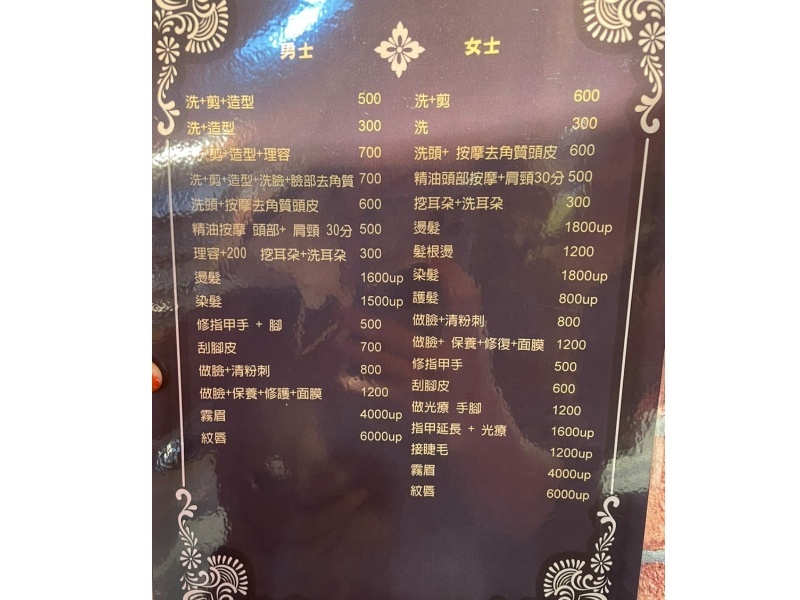 男士
洗+剪+造型 500
洗+造型 300
洗+剪+造型+理容 700
洗+剪+造型+洗臉+臉部去角質 700
洗頭+按摩去角質頭皮 600
精油按摩 頭部+ 肩頸 30分 500
理容+200 挖耳朵+洗耳朵 300
燙髮 1600up
染髮 1500up
修指甲手 + 腳 500
刮腳皮 700
做臉+清粉刺 800
做臉+保養+修護+面膜 1200
霧眉 4000up
紋唇 6000up
女士
洗+剪 600
洗 300
洗頭+ 按摩去角質頭皮 600
精油頭部按摩+肩頸30分 500
挖耳朵+洗耳朵 300
燙髮 1800up
髮根燙 1200
染髮 1800up
護髮 800up
做臉+清粉刺 800
做臉+ 保養+修復+面膜 1200
修指甲手 500
刮腳皮 600
做光療 手腳 1200
指甲延長 + 光療 1600up
接睫毛 1200up
霧眉 4000up
紋唇 6000up